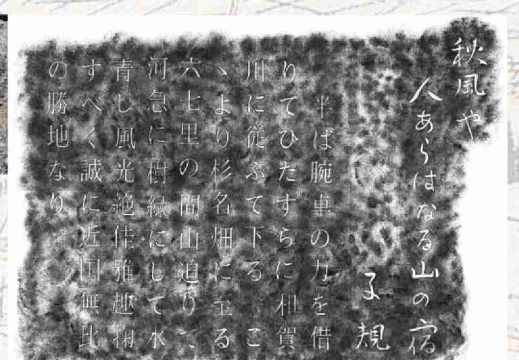 秋風や
人あらはなる山の宿
子規
平ば腕車の力を借
りてひたすらに和賀
川に従ふて下る　こ
ゝより杉名畑に至る
六七里の間山迫りて
河急に樹緑にして水
青し風光絶佳雅趣掬
すべく誠に近国無比
の勝地なり